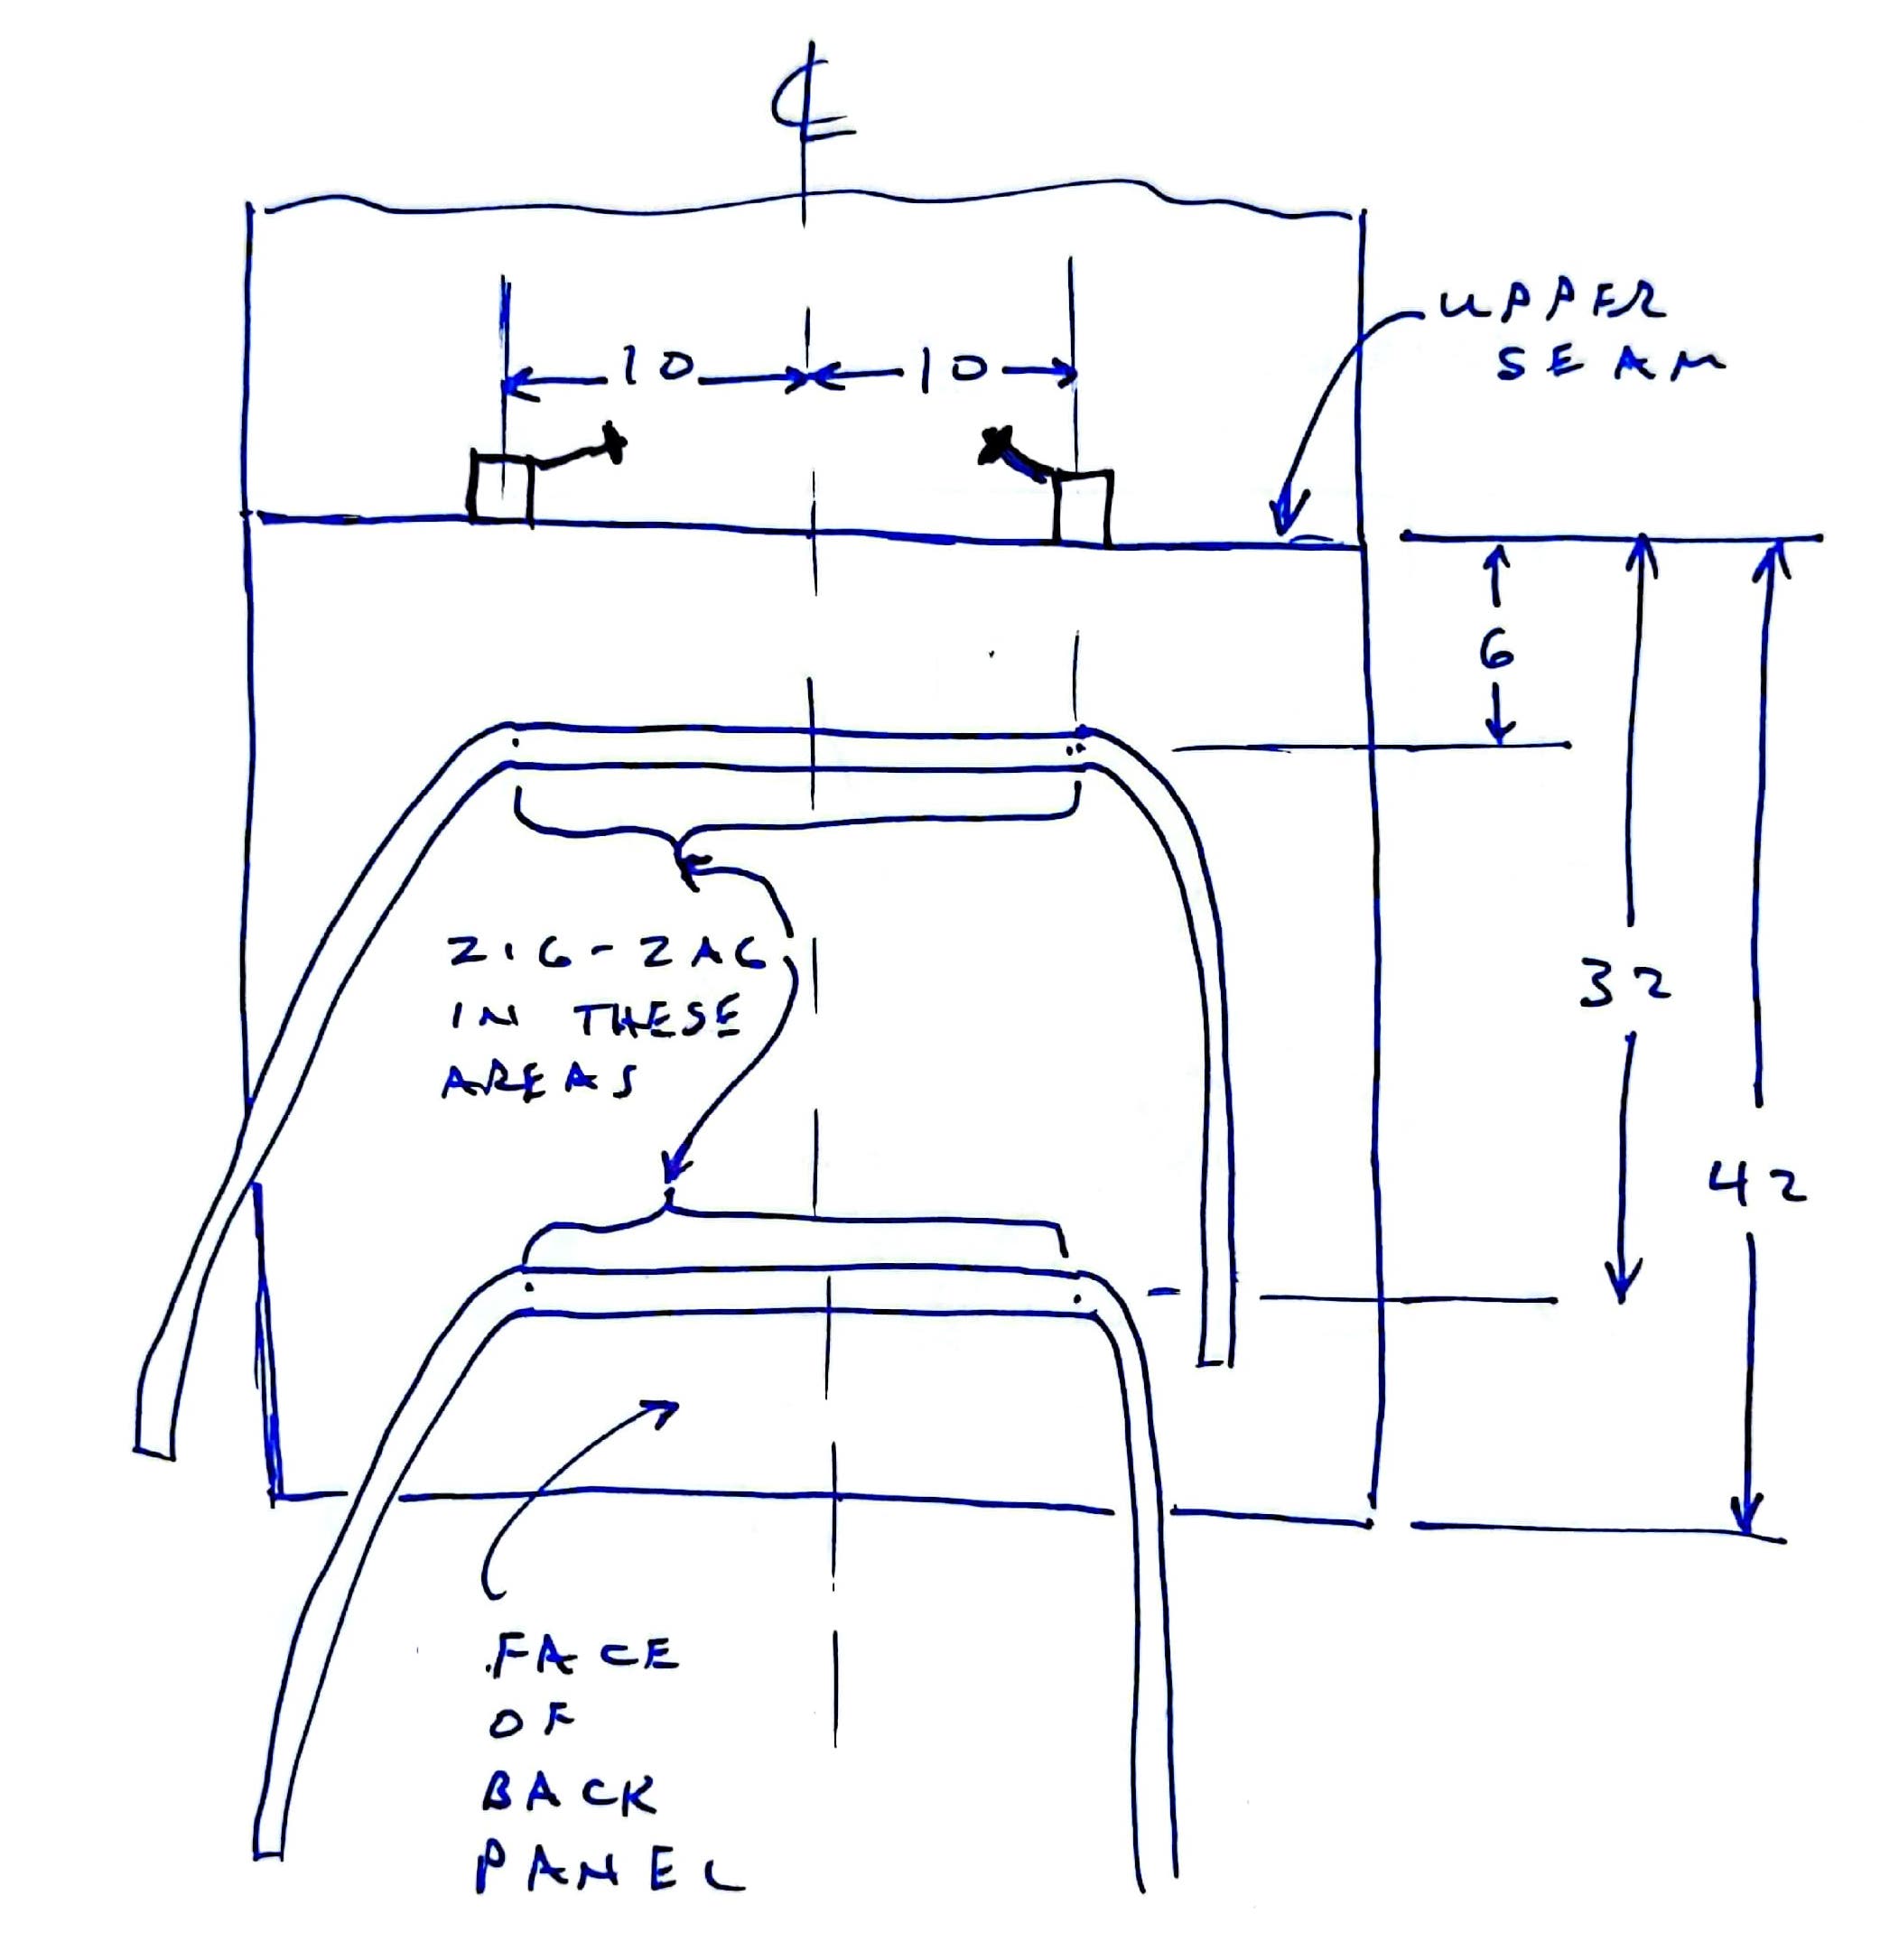 ℄
10 10
UPPER
SEAM
6
32
42
ZIG-ZAG
IN THESE
AREAS
FACE
OF
BACK
PANEL